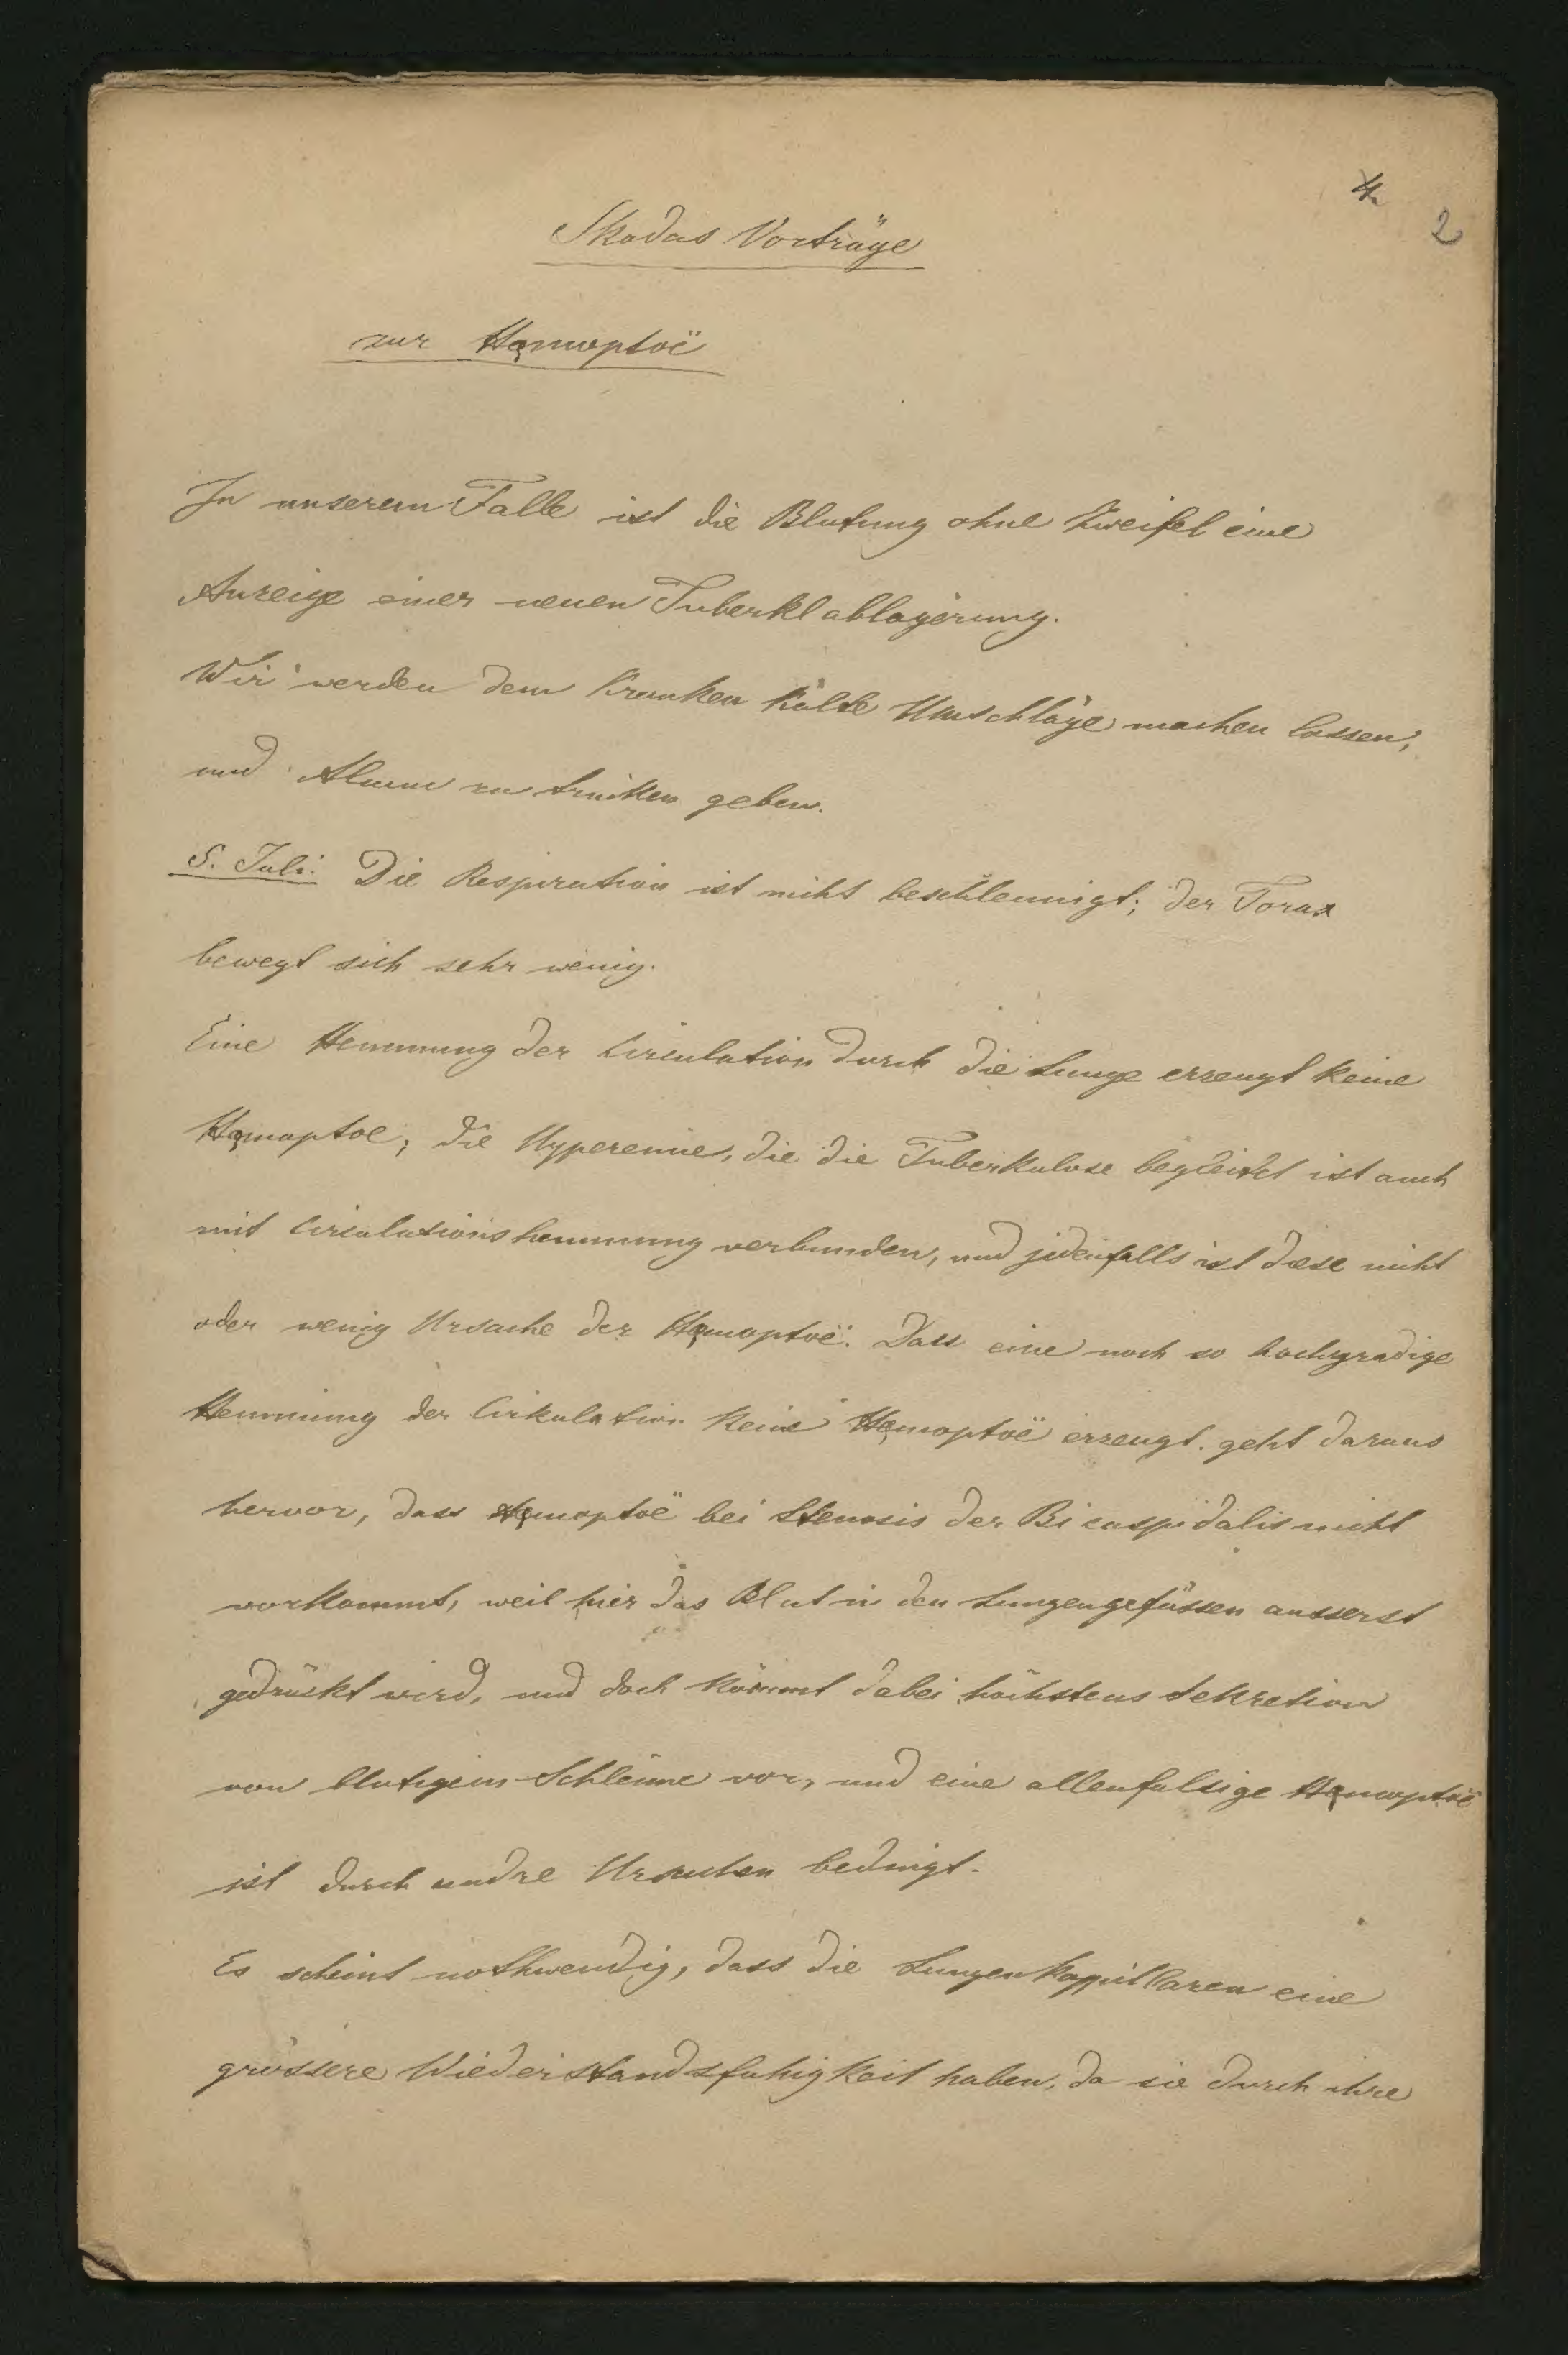 4.
2
Skodas Vorträge
zur Hęmoptoë
In unserem Falle ist die Blutung ohne Zweifel eine
Anzeige einer neuen Tuberklablagerung.
Wir werden dem Kranken kalte Umschläge machen lassen,
und Alaun zu trinken geben.
5. Juli: Die Respiration ist nicht beschleunigt; der Torax
bewegt sich sehr wenig.
Eine Hemmung der Circulation durch die Lunge erzeugt keine
Hęmoptoe; die Hyperemie, die die Tuberkulose begleitet ist auch
mit Circulationshemmung verbunden, und jedenfalls ist diese nicht
oder wenig Ursache der Hęmoptoë. Dass eine noch so hochgradige
Hemmung der Cirkulation keine Hęmoptoë erzeugt, geht daraus
hervor, dass Hęmoptoë bei Stenosis der Bicuspidalis nicht
vorkommt, weil hier das Blut in den Lungengefässen ausserst
gedrückt wird, und doch kömmt dabei höchstens Sekretion
von blutigem Schleime vor, und eine allenfalsige Hęmoptoë
ist durch andre Ursachen bedingt.
Es scheint nothwendig, dass die Lungenkappillaren eine
grössere Wiederstandsfahigkeit haben, da sie durch ihre